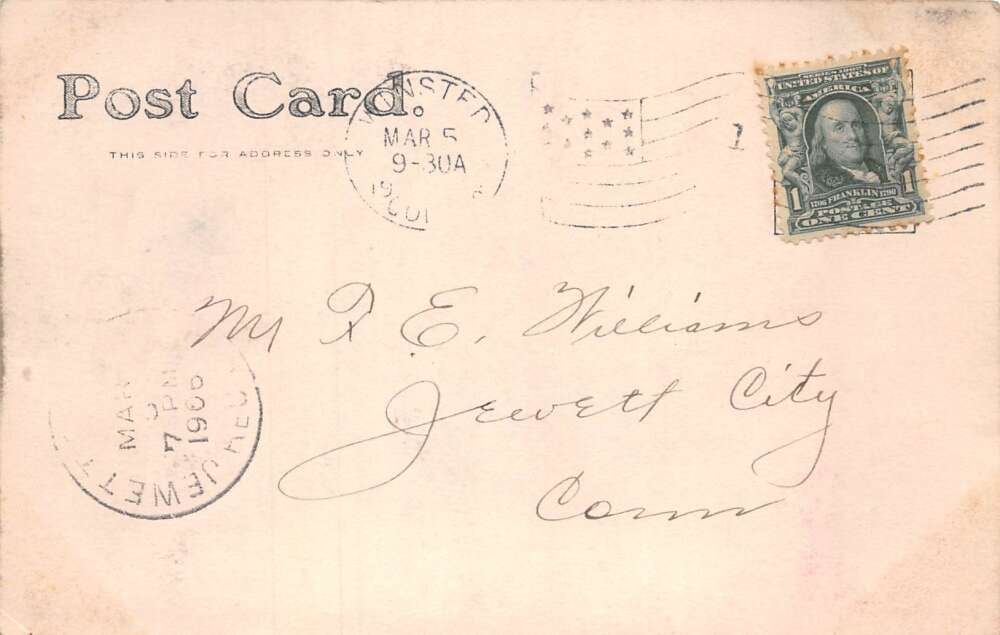 Post Card
THIS SIDE FOR ADDRESS ONLY
WINSTED
MAR 5
9-30A
19
1
SERIES 1902
UNITED STATES OF
AMERICA
1706 FRANKLIN 1790
1 POSTAGE 1
ONE CENT
Mr E. Williams
Jewett City
Conn
JEWETT
MAR
7 PM
1906
REC